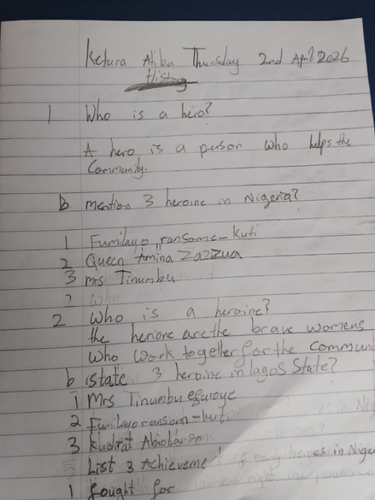 Ketura Atiba Thursday 2nd April 2026
History
1 Who is a hero?
A hero is a person who helps the
Community.
b mention 3 heroine in Nigeria?
1 Fumilayo ransome-kuti
2 Queen Amina Zazzua
3 mrs Tinumbu
2 Who
2 Who is a heroine?
the heriore are the brave womens
Who Work together for the commun
b state 3 heroine in lagos State?
1 Mrs Tinumbu efuroye
2 Fumilayo ransom-kuti
3 Kudirat
List 3 Achievement of early heroes in Nige
1 fought for